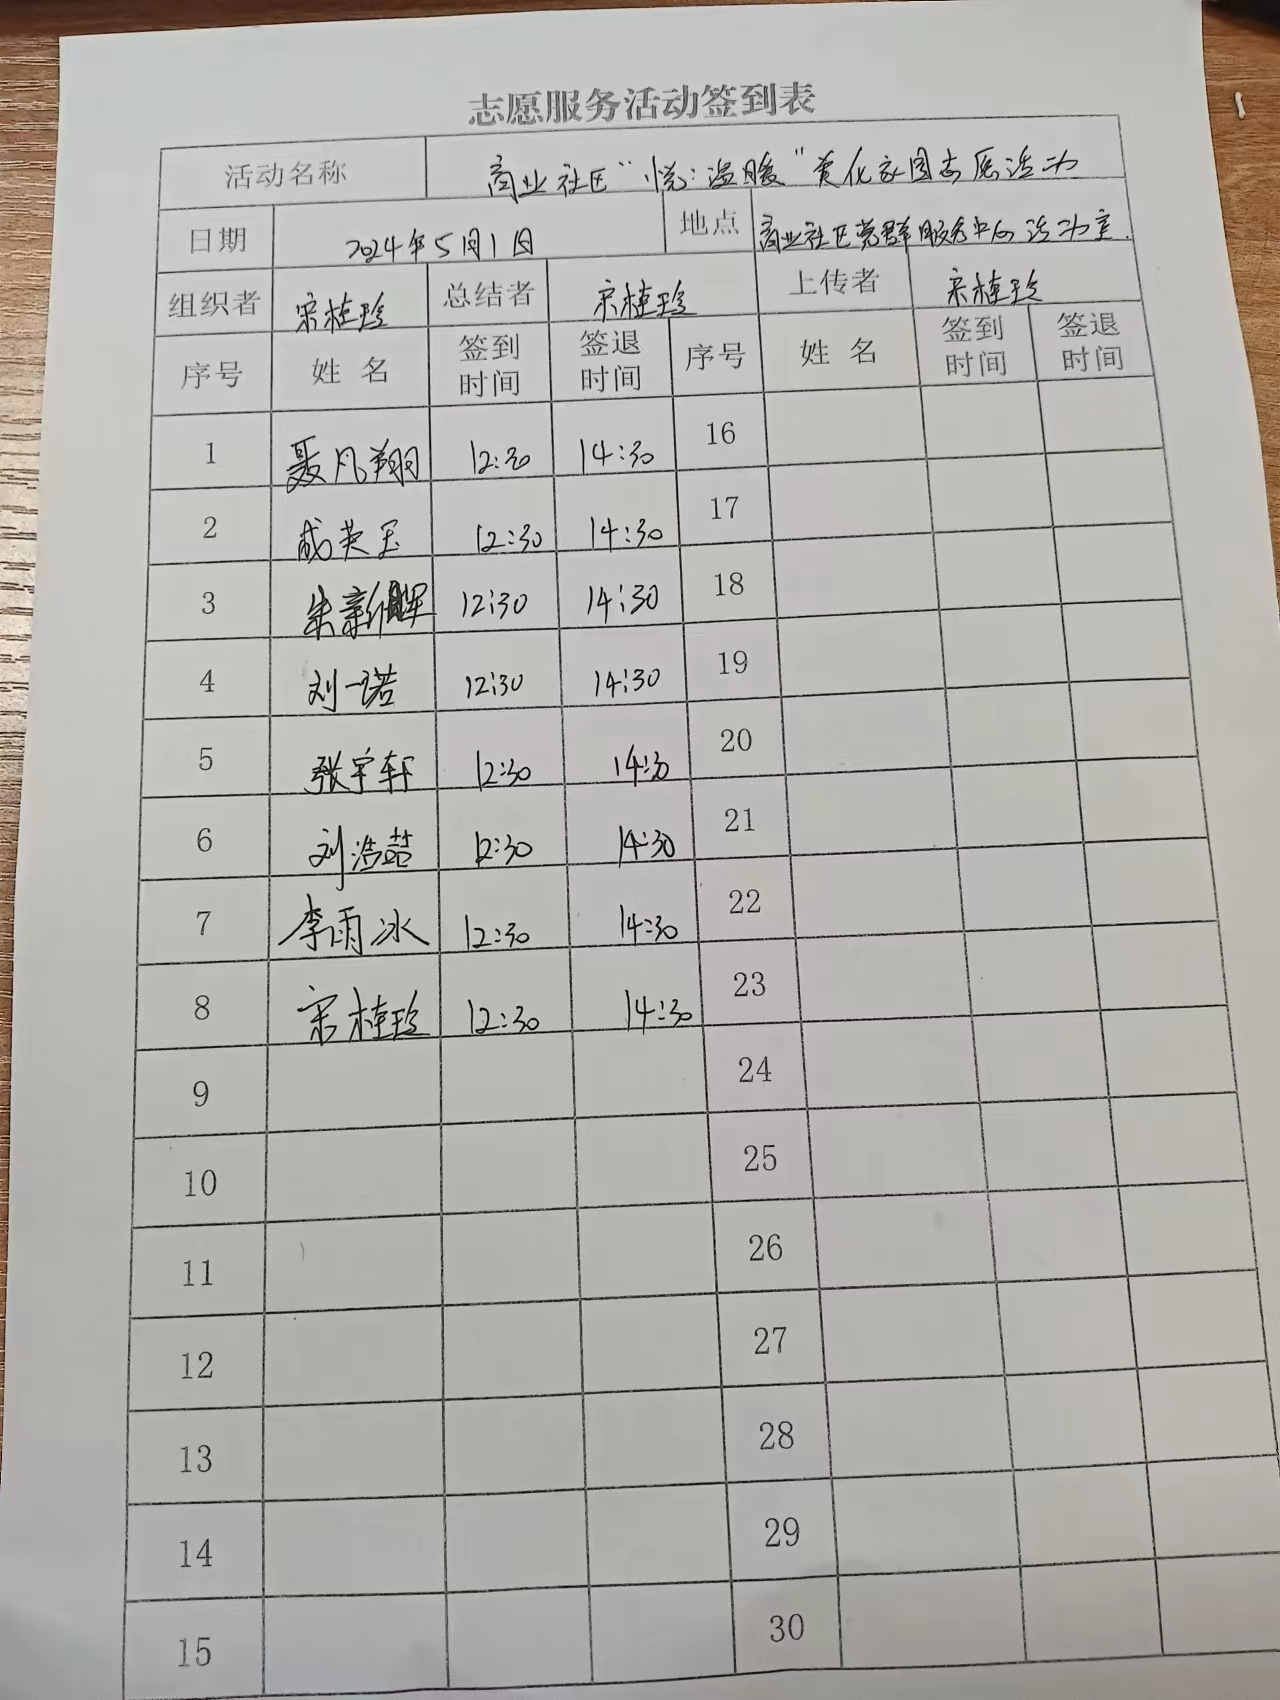 志愿服务活动签到表
活动名称 商业社区“悦·温暖”美化家园志愿活动
日期 2024年5月1日 地点 商业社区党群服务中心活动室.
组织者 宋桂珍 总结者 宋桂珍 上传者 宋桂珍
序号 姓名 签到时间 签退时间 序号 姓名 签到时间 签退时间
1 聂凡翔 12:30 14:30 16
2 成英玉 12:30 14:30 17
3 朱新 12:30 14:30 18
4 刘一诺 12:30 14:30 19
5 张宇轩 12:30 14:30 20
6 刘浩喆 12:30 14:30 21
7 李雨冰 12:30 14:30 22
8 宋桂珍 12:30 14:30 23
9 24
10 25
11 26
12 27
13 28
14 29
15 30